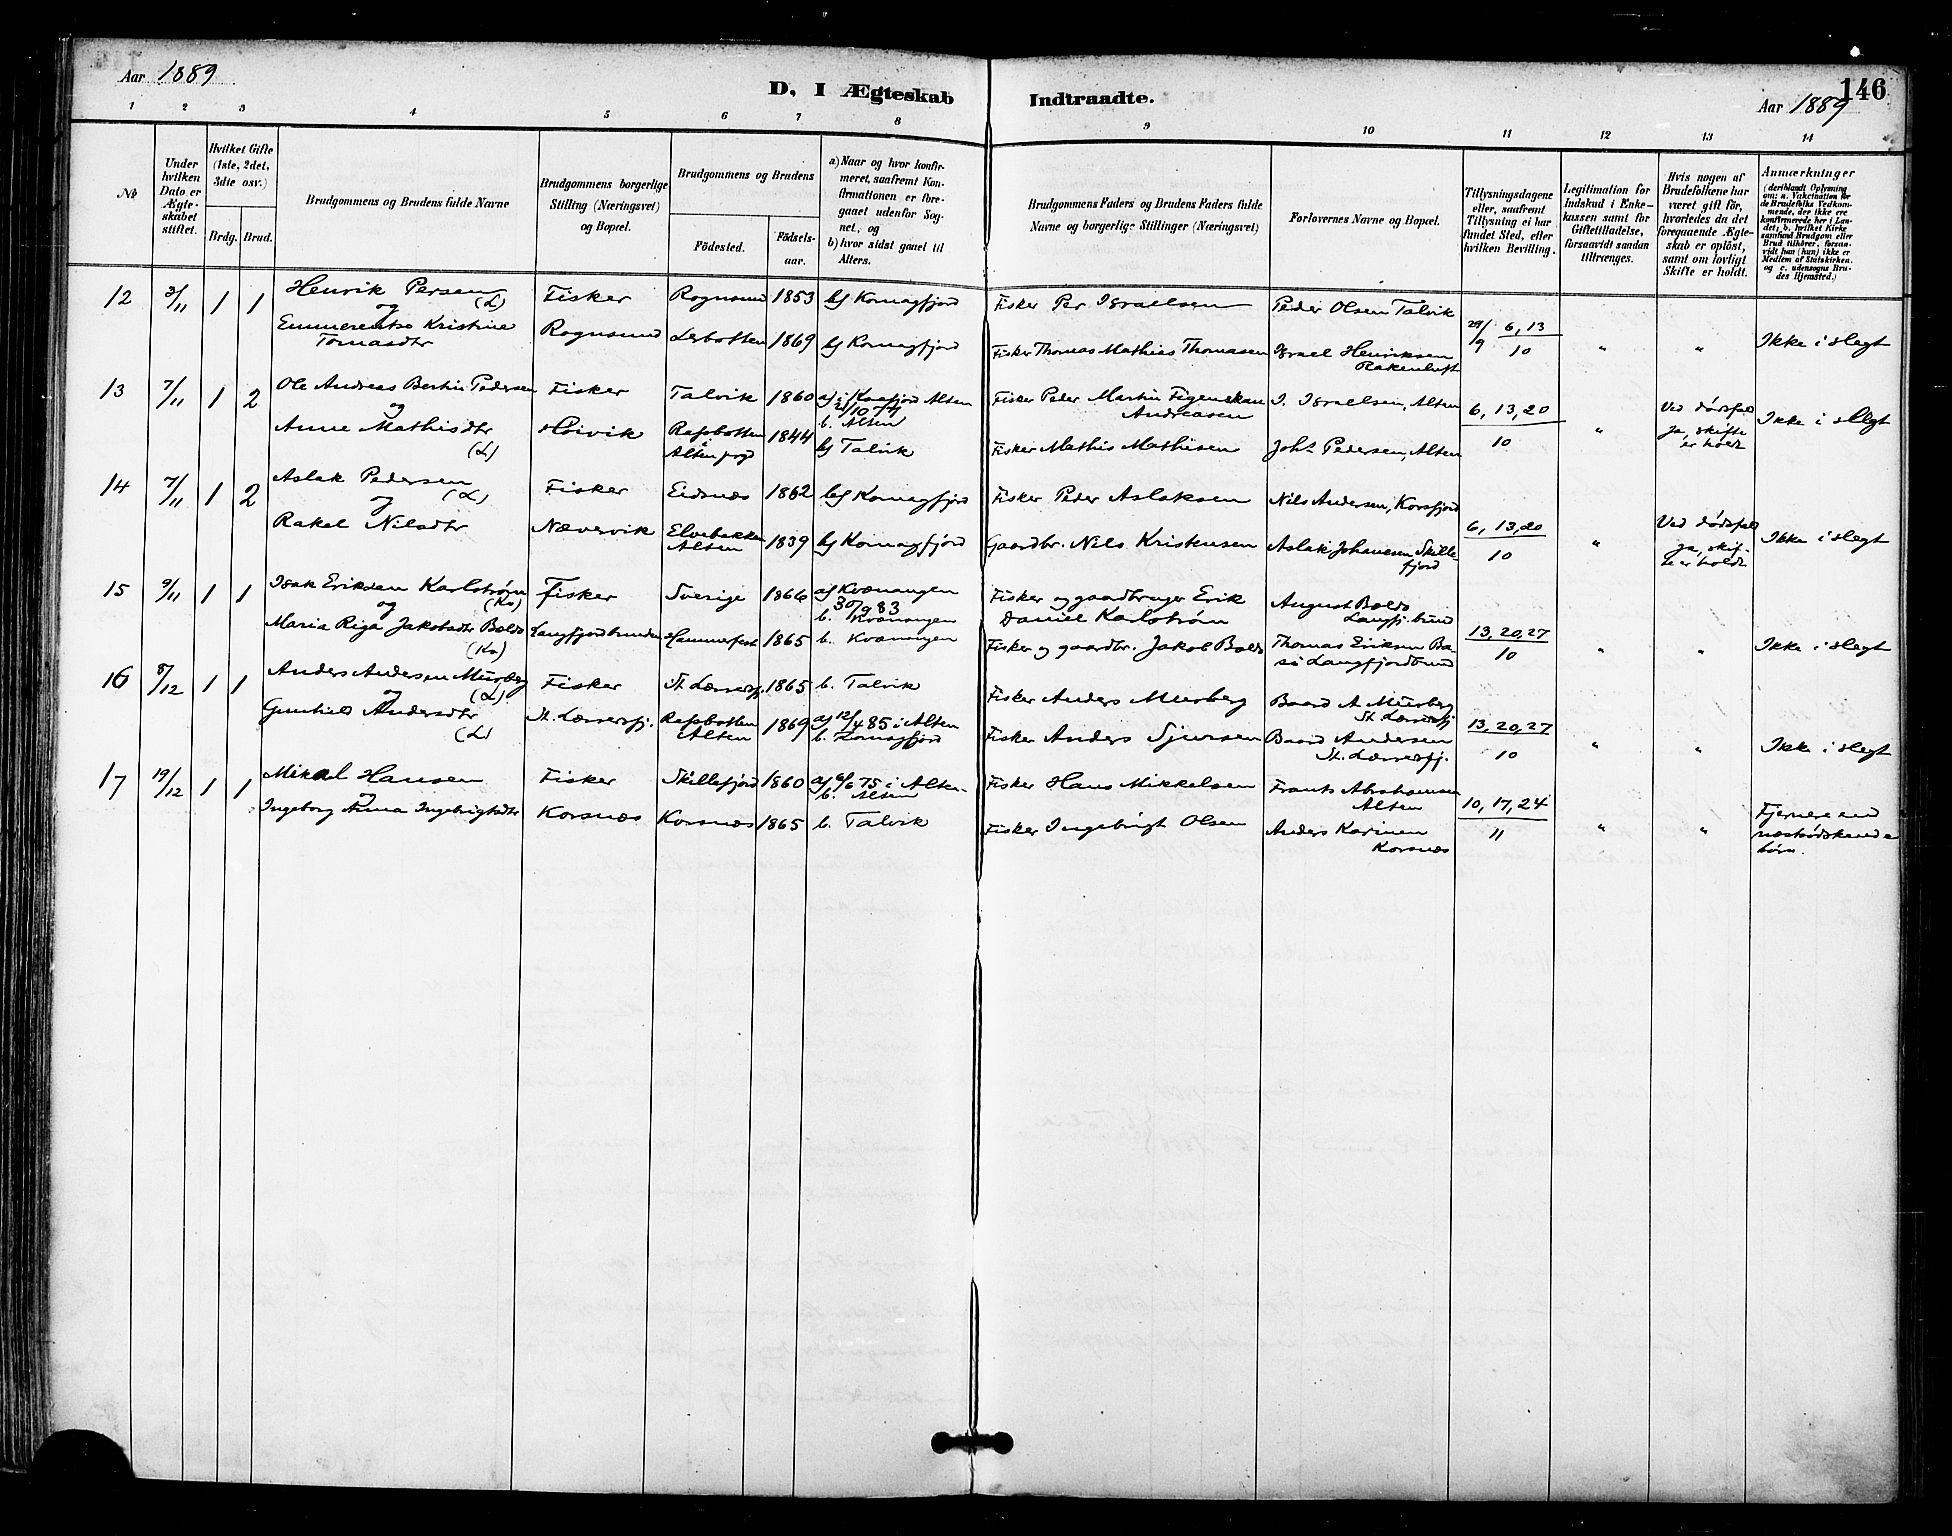 Aar 1889
D, I Ægteskab Indtraadte.
146
Aar 1889
1 2 3 4 5 6 7 8 9 10 11 12 13 14
№
Under hvilken Dato er Ægteskabet stiftet.
Hvilket Gifte (1ste, 2det, 3die osv.)
Brdg. Brud.
Brudgommens og Brudens fulde Navne
Brudgommens borgerlige Stilling (Næringsvei) og Bopæl.
Brudgommens og Brudens
Födested.
Födsels-aar.
a) Naar og hvor konfirmeret, saafremt Konfirmationen er foregaaet udenfor Sognet, og
b) hvor sidst gaaet til Alters.
Brudgommens Faders og Brudens Faders fulde Navne og borgerlige Stillinger (Næringsvei)
Forlovernes Navne og Bopæl.
Tillysningsdagene eller, saafremt Tillysning ei har fundet Sted, efter hvilken Bevilling.
Legitimation for Indskud i Enkekassen samt for Giftetilladelse, forsaavidt saadan tiltrænges.
Hvis nogen af Brudefolkene har været gift för, hvorledes da det foregaaende Ægteskab er oplöst, samt om lovligt Skifte er holdt.
Anmærkninger (deriblandt Oplysning om: a. Vakcination for de Brudefolks Vedkommende, der ikke ere konfirmerede her i Landet; b. hvilket Kirkesamfund Brudgom eller Brud tilhörer, forsaavidt han (hun) ikke er Medlem af Statskirken, og c. udensogns Brudes Hjemsted.)
12 2/11 1 1 Henrik Persen (L) Fisker Rognsund 1853 b) Komagfjord Fisker Per Israelsen Peder Olsen Talvik
og
Emmerentse Kristine Tomasdtr Rognsund Lerbotten 1869 b) Komagfjord Fisker Thomas Mathias Thomasen Israel Henriksen 29/9 6, 13 / 10 " " Ikke i slegt
13 7/11 1 2 Ole Andreas Bertin Pedersen Fisker Talvik 1860 a) i Kaafjord Alten b. Alten Fisker Peder Martin Figenskau Andreasen I. Israelsen, Alten
og
Anne Mathisdtr (L) Høivik Rafsbotten i Alten prgd 1844 b) Talvik Fisker Mathis Mathisen Joh. Pedersen, Alten 6, 13, 20 / 10 " Ved dødsfald ja, skifte er holdt Ikke i slegt
14 7/11 1 2 Aslak Pedersen (L) Fisker Eidsnæs 1862 b) Komagfjord Fisker Peder Aslaksen Nils Andersen, Korsfjord
og
Rakel Nilsdtr Nævervik Elvebakken Alten 1839 b) Komagfjord Gaardbr. Nils Kristensen Aslak Johannesen Skillefjord 6, 13, 20 / 10 " Ved dødsfald ja, skifte er holdt Ikke i slegt
15 9/11 1 1 Isak Eriksen Karlstrøm (Kv) Fisker Sverige 1866 a) Kvænangen 30/9 83 b. Kvænangen Fisker og gaardbruger Erik Daniel Karlstrøm August Boldo Langfj.bund
og
Maria Riga Jakobsdtr Boldo (Kv) Langfjordbunden Hammerfest 1865 b. Kvænangen Fisker og gaardbr. Jakob Boldo Thomas Eriksen Langfjordbund 13, 20, 27 / 10 " " Ikke i slegt
16 8/12 1 1 Anders Andersen Murberg (L) Fisker St. Lærresfj. 1865 b. Talvik Fisker Anders Murberg Baard A. Murberg St. Lærresfj.
og
Gunhild Andersdtr (L) St. Lærresfj. Rafsbotten Alten 1869 a) 12/4 85 i Alten b. Komagfjord Fisker Anders Sjursen Baard Andersen St. Lærresfj. 13, 20, 27 / 10 " " Ikke i slegt
17 19/12 1 1 Mikal Hansen Fisker Skillefjord 1860 a) 6/6 75 i Alten b. Alten Fisker Hans Mikkelsen Frants Abrahamsen Alten
og
Ingeborg Anna Ingebrigtsdtr Korsnæs Korsnæs 1865 b. Talvik Fisker Ingebrigt Olsen Anders Karinen Korsnæs 10, 17, 24 / 11 " " Fjernere end næstsødskende børn.